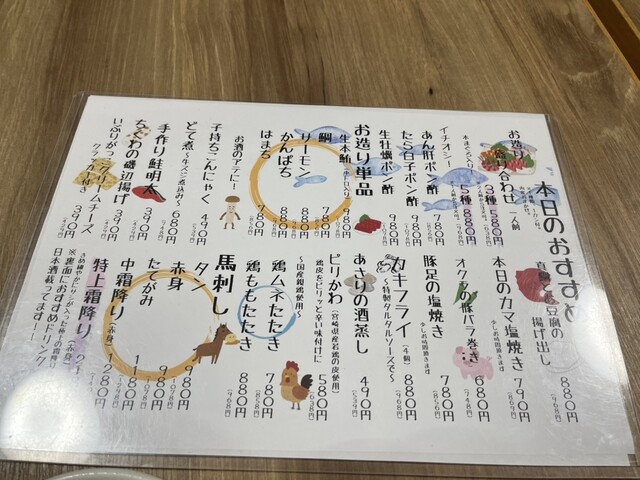 本日のおすすめ
お造り盛り合わせ 一人前
3種 580円
5種 880円
イチオシ～
あん肝ポン酢 780円
たら白子ポン酢 980円
生牡蠣ポン酢 980円
お造り単品
生本鮪 980円
鯛 780円
サーモン 880円
かんぱち 880円
はまち 780円
お酒のアテに～
子持ちこんにゃく 490円
どて煮 ～牛スジ煮込み～ 680円
手作り鮭明太 390円
ちくわの磯辺揚げ 390円
いぶりがっことクリームチーズ
クラッカー付き 390円
真鯛とお豆腐の
揚げ出し 880円
(968円)
本日のカマ塩焼き 790円
(869円)
オクラの豚バラ巻き 680円
(748円)
豚足の塩焼き 780円
カキフライ (4個) 880円
～特製タルタルソースで～ (968円)
あさりの酒蒸し 490円
ピリかわ (宮崎県産若鶏の皮使用) 580円
鶏皮をピリッと辛い味付けに (638円)
～国産親鶏使用～
鶏ムネたたき 780円
(858円)
鶏ももたたき 880円
(968円)
馬刺し
タン 980円
赤身 980円
たてがみ 1180円
中霜降り (赤身) 1180円
特上霜降り (赤身) 1280円
※裏面におすすめドリンク
日本酒載ってます～！